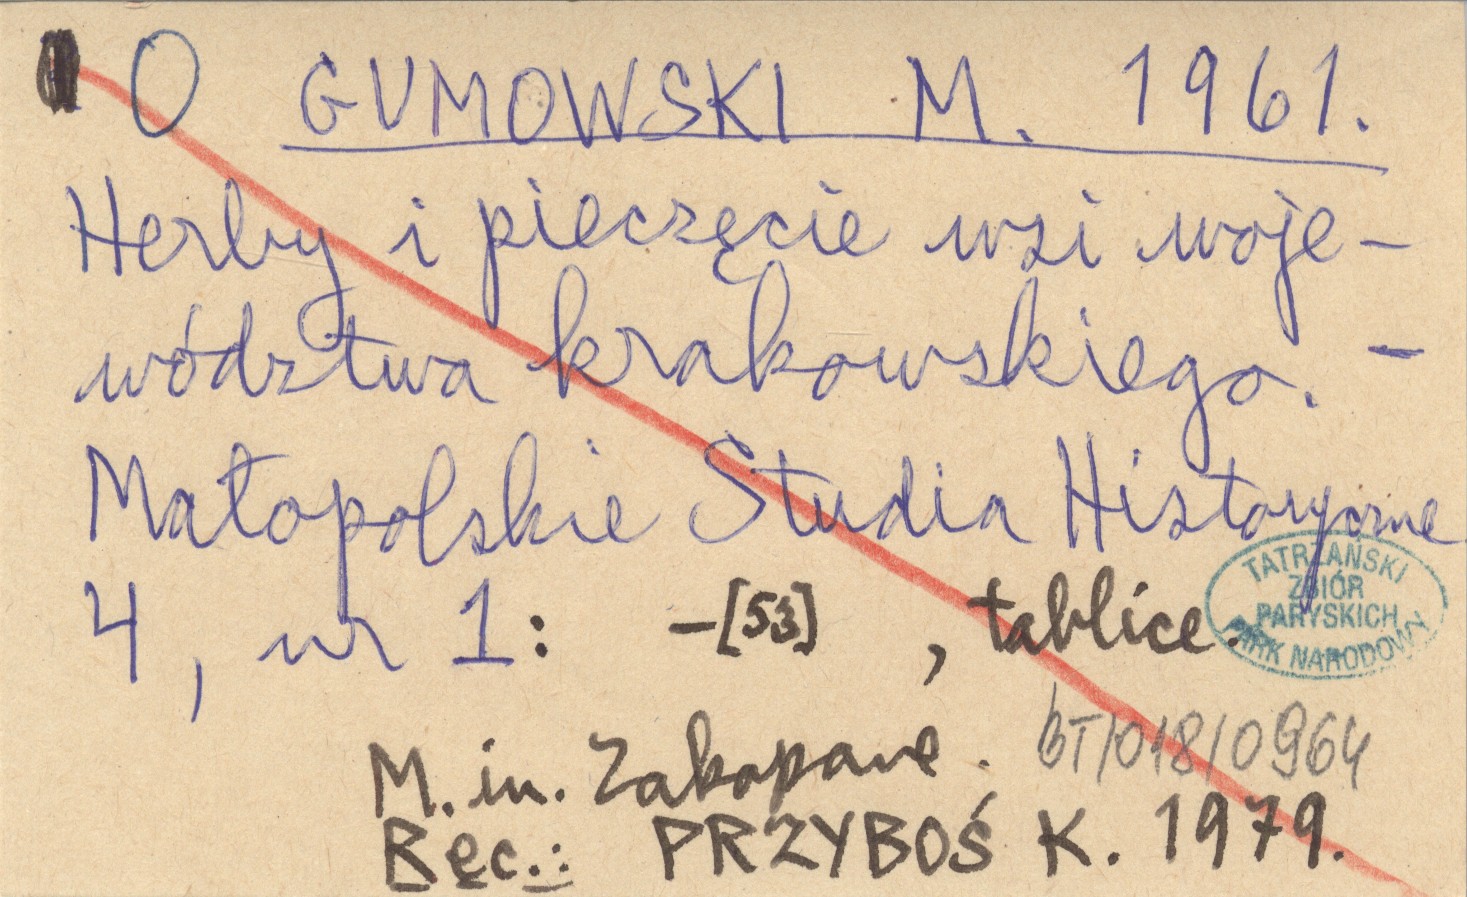 O GUMOWSKI M. 1961.
Herby i pieczęcie wsi woje-
wództwa krakowskiego. -
Małopolskie Studia Historyczne
4, nr 1: -[53] , tablice.
TATRZAŃSKI
ZBIÓR
PARYSKICH
PARK NARODOWY
M. in. Zakopane. bT/018/0964
Rec.: PRZYBOŚ K. 1979.